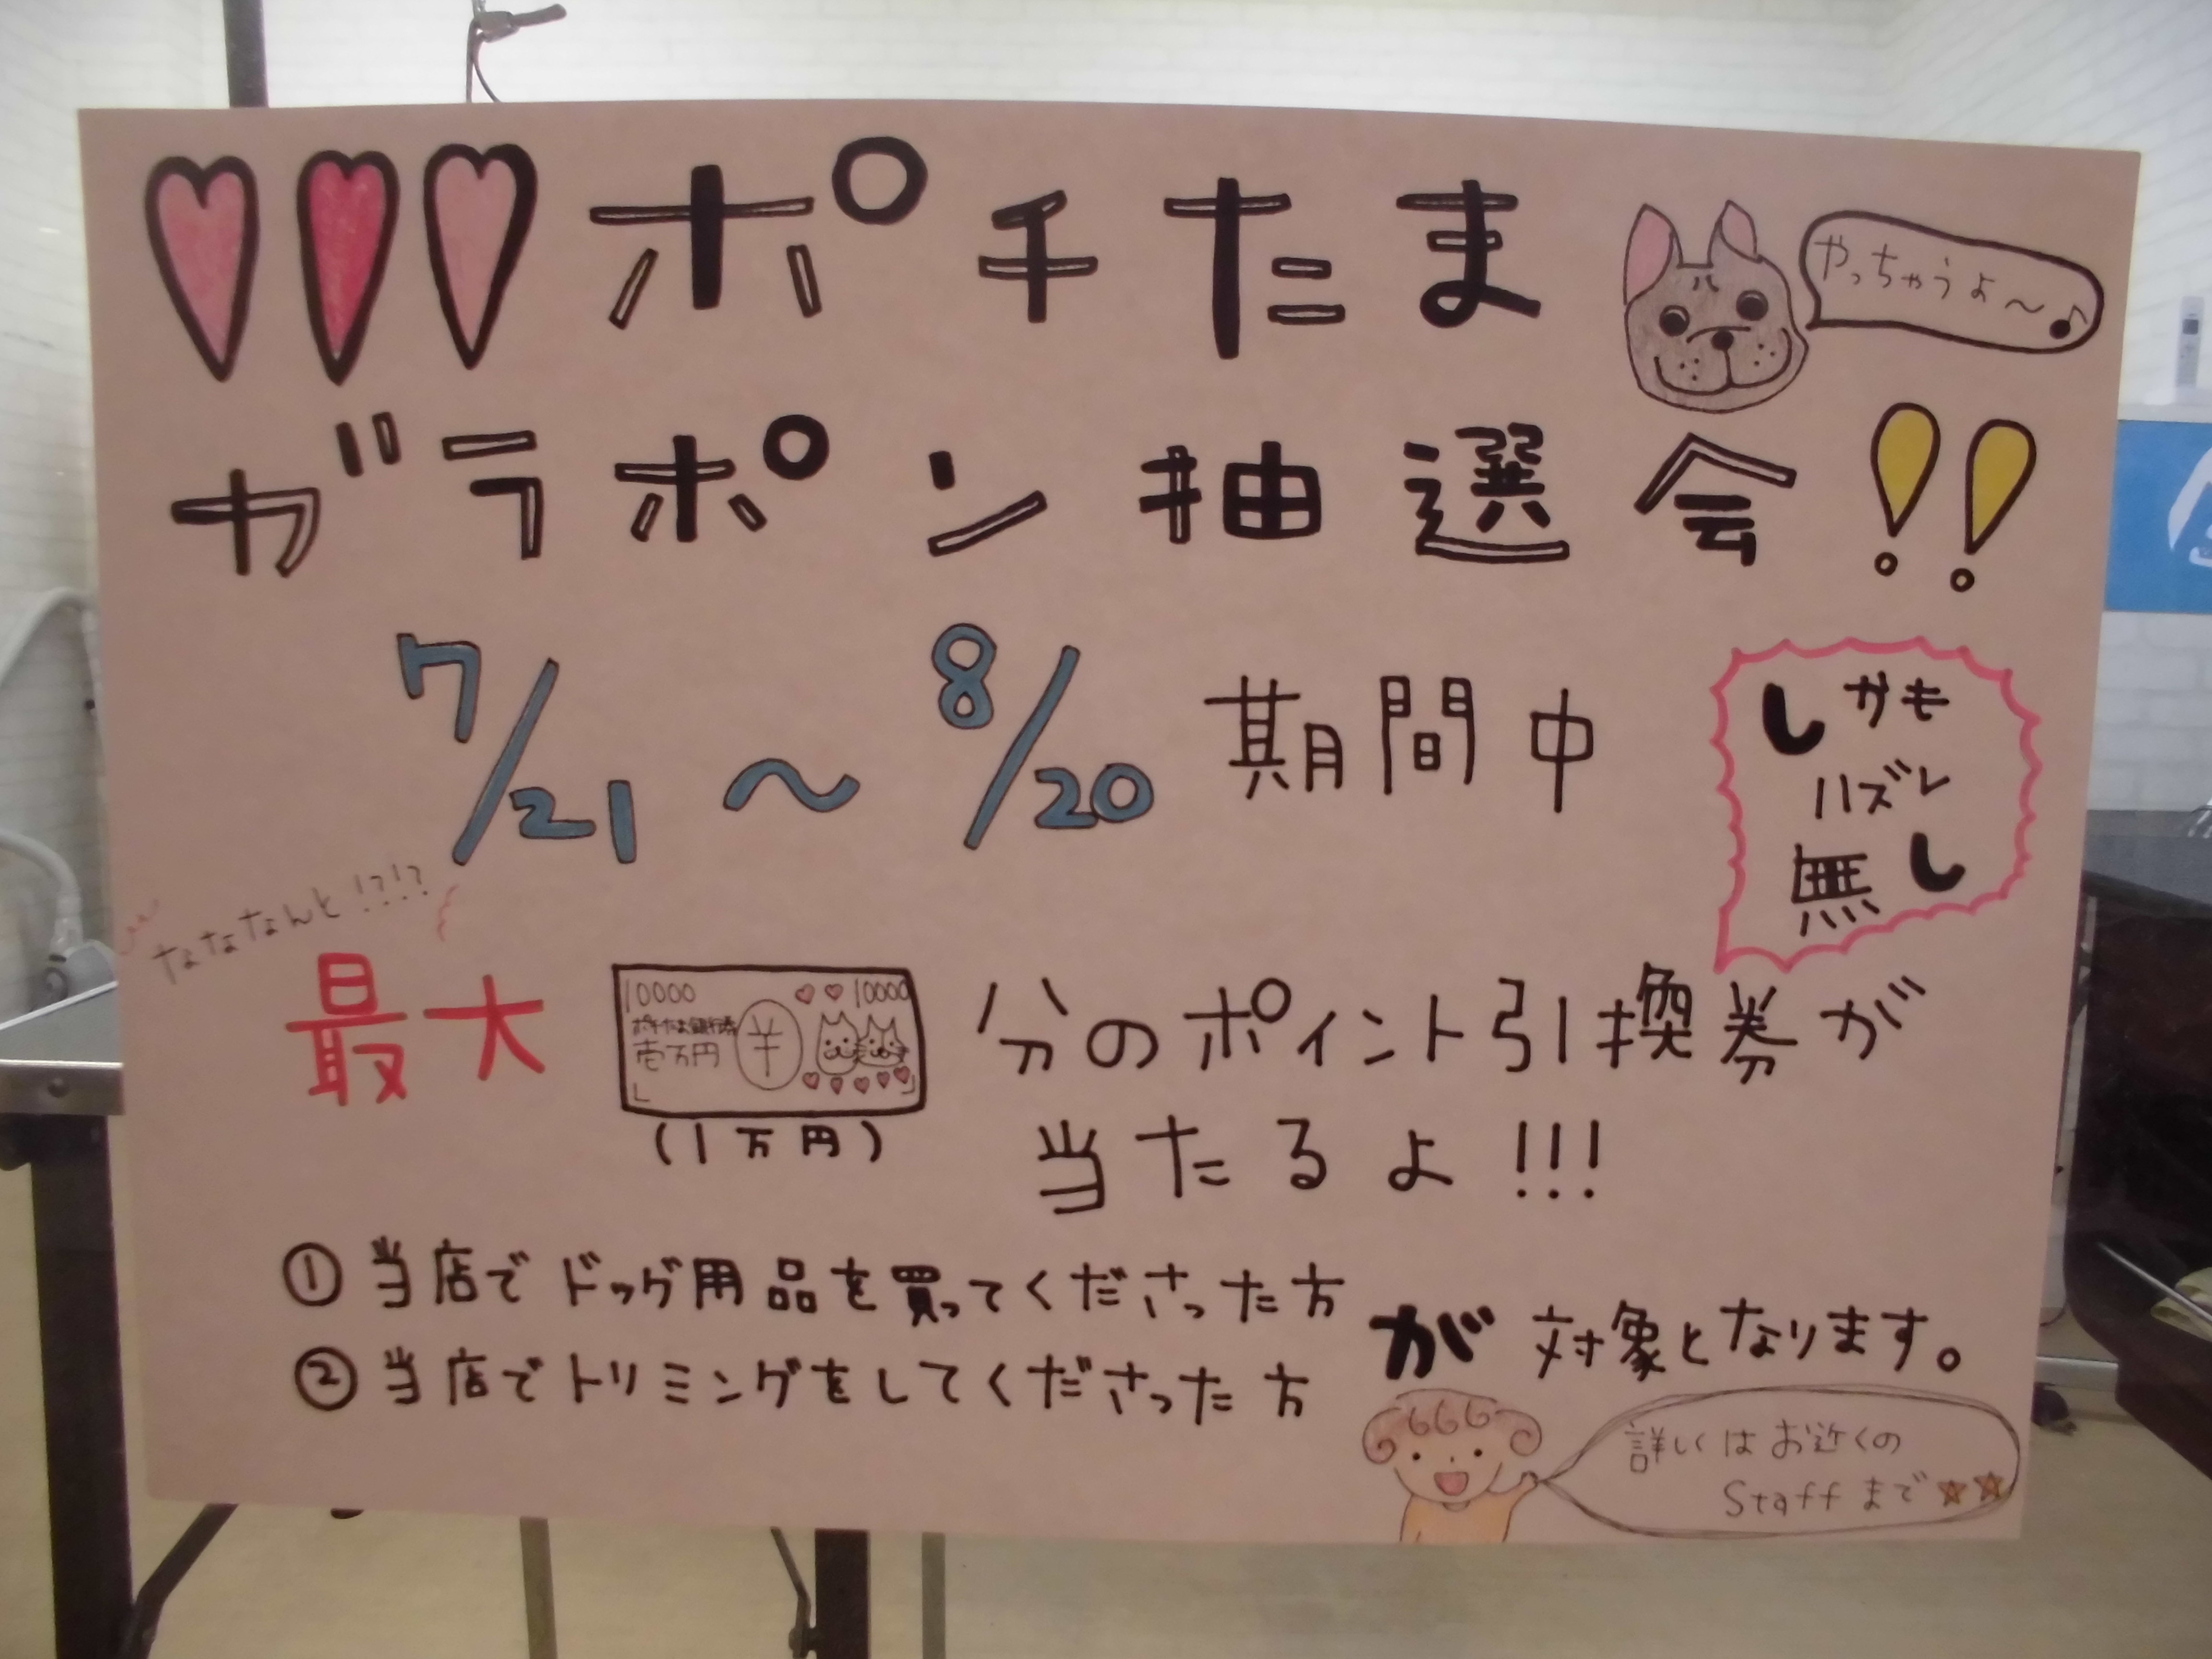 ポチたま
やっちゃうよ～♪
ガラポン抽選会!!
7/21～8/20期間中
しかも
ハズレ
無し
なななんと!?!?
最大
10000 10000
壱万円 ¥
(1万円)
分のポイント引換券が
当たるよ!!!
①当店でドッグ用品を買ってくださった方
②当店でトリミングをしてくださった方
が対象となります。
詳しくはお近くの
Staffまで☆☆